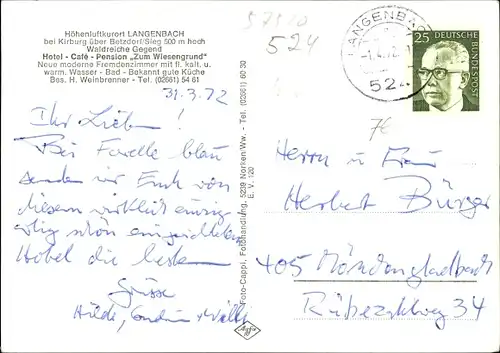 Höhenluftkurort LANGENBACH
bei Kirburg über Betzdorf/Sieg 500 m hoch
Waldreiche Gegend
Hotel - Café - Pension „Zum Wiesengrund"
Neue moderne Fremdenzimmer mit fl. kalt. u.
warm. Wasser - Bad - Bekannt gute Küche
Bes. H. Weinbrenner - Tel. (02661) 54 61
31.3.72
Ihr Lieben!
Bei Forelle blau
senden wir Euch von
diesem wirklich einzig-
artig schön eingerichteten
Hotel die besten
Grüsse
Hilde, + Willi
Foto-Cappi, Fotohandlung, 5239 Norken/Ww. - Tel. (02661) 60 30
E. V. 120
Agfa
57510
524
LANGENBACH
524
25
DEUTSCHE
BUNDESPOST
7€
Herrn u. Frau
Herbert Bürger
405 Mönchengladbach
Rübezahlweg 34